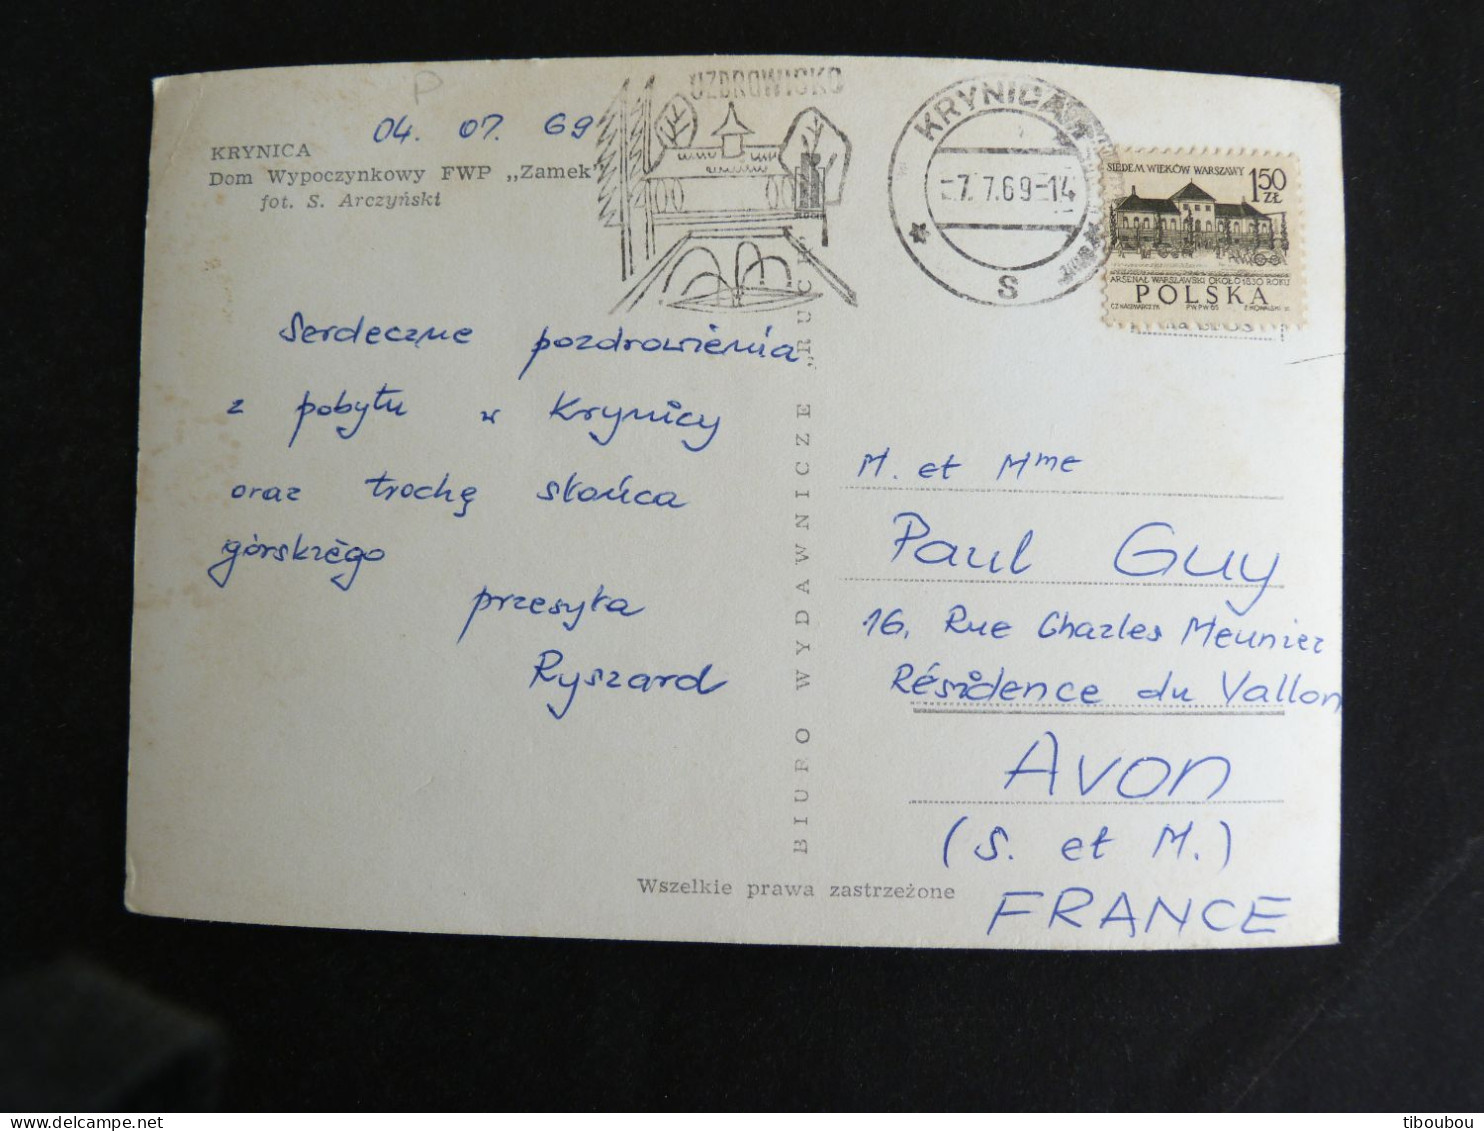 P
04. 07. 69
KRYNICA
Dom Wypoczynkowy FWP „Zamek"
fot. S. Arczyński
UZDROWISKO
KRYNICA
-7.7.69-14
S
SIEDEM WIEKÓW WARSZAWY
150
ZŁ
ARSENAŁ WARSZAWSKI OKOŁO 1830 ROKU
POLSKA
Serdeczne pozdrowienia
z pobytu w Krynicy
oraz trochę słońca
górskiego
przesyła
Ryszard
BIURO WYDAWNICZE „RUCH"
M. et Mme
Paul Guy
16, Rue Charles Meunier
Résidence du Vallon
AVON
(S. et M.)
FRANCE
Wszelkie prawa zastrzeżone
delcampe.net
tiboubou